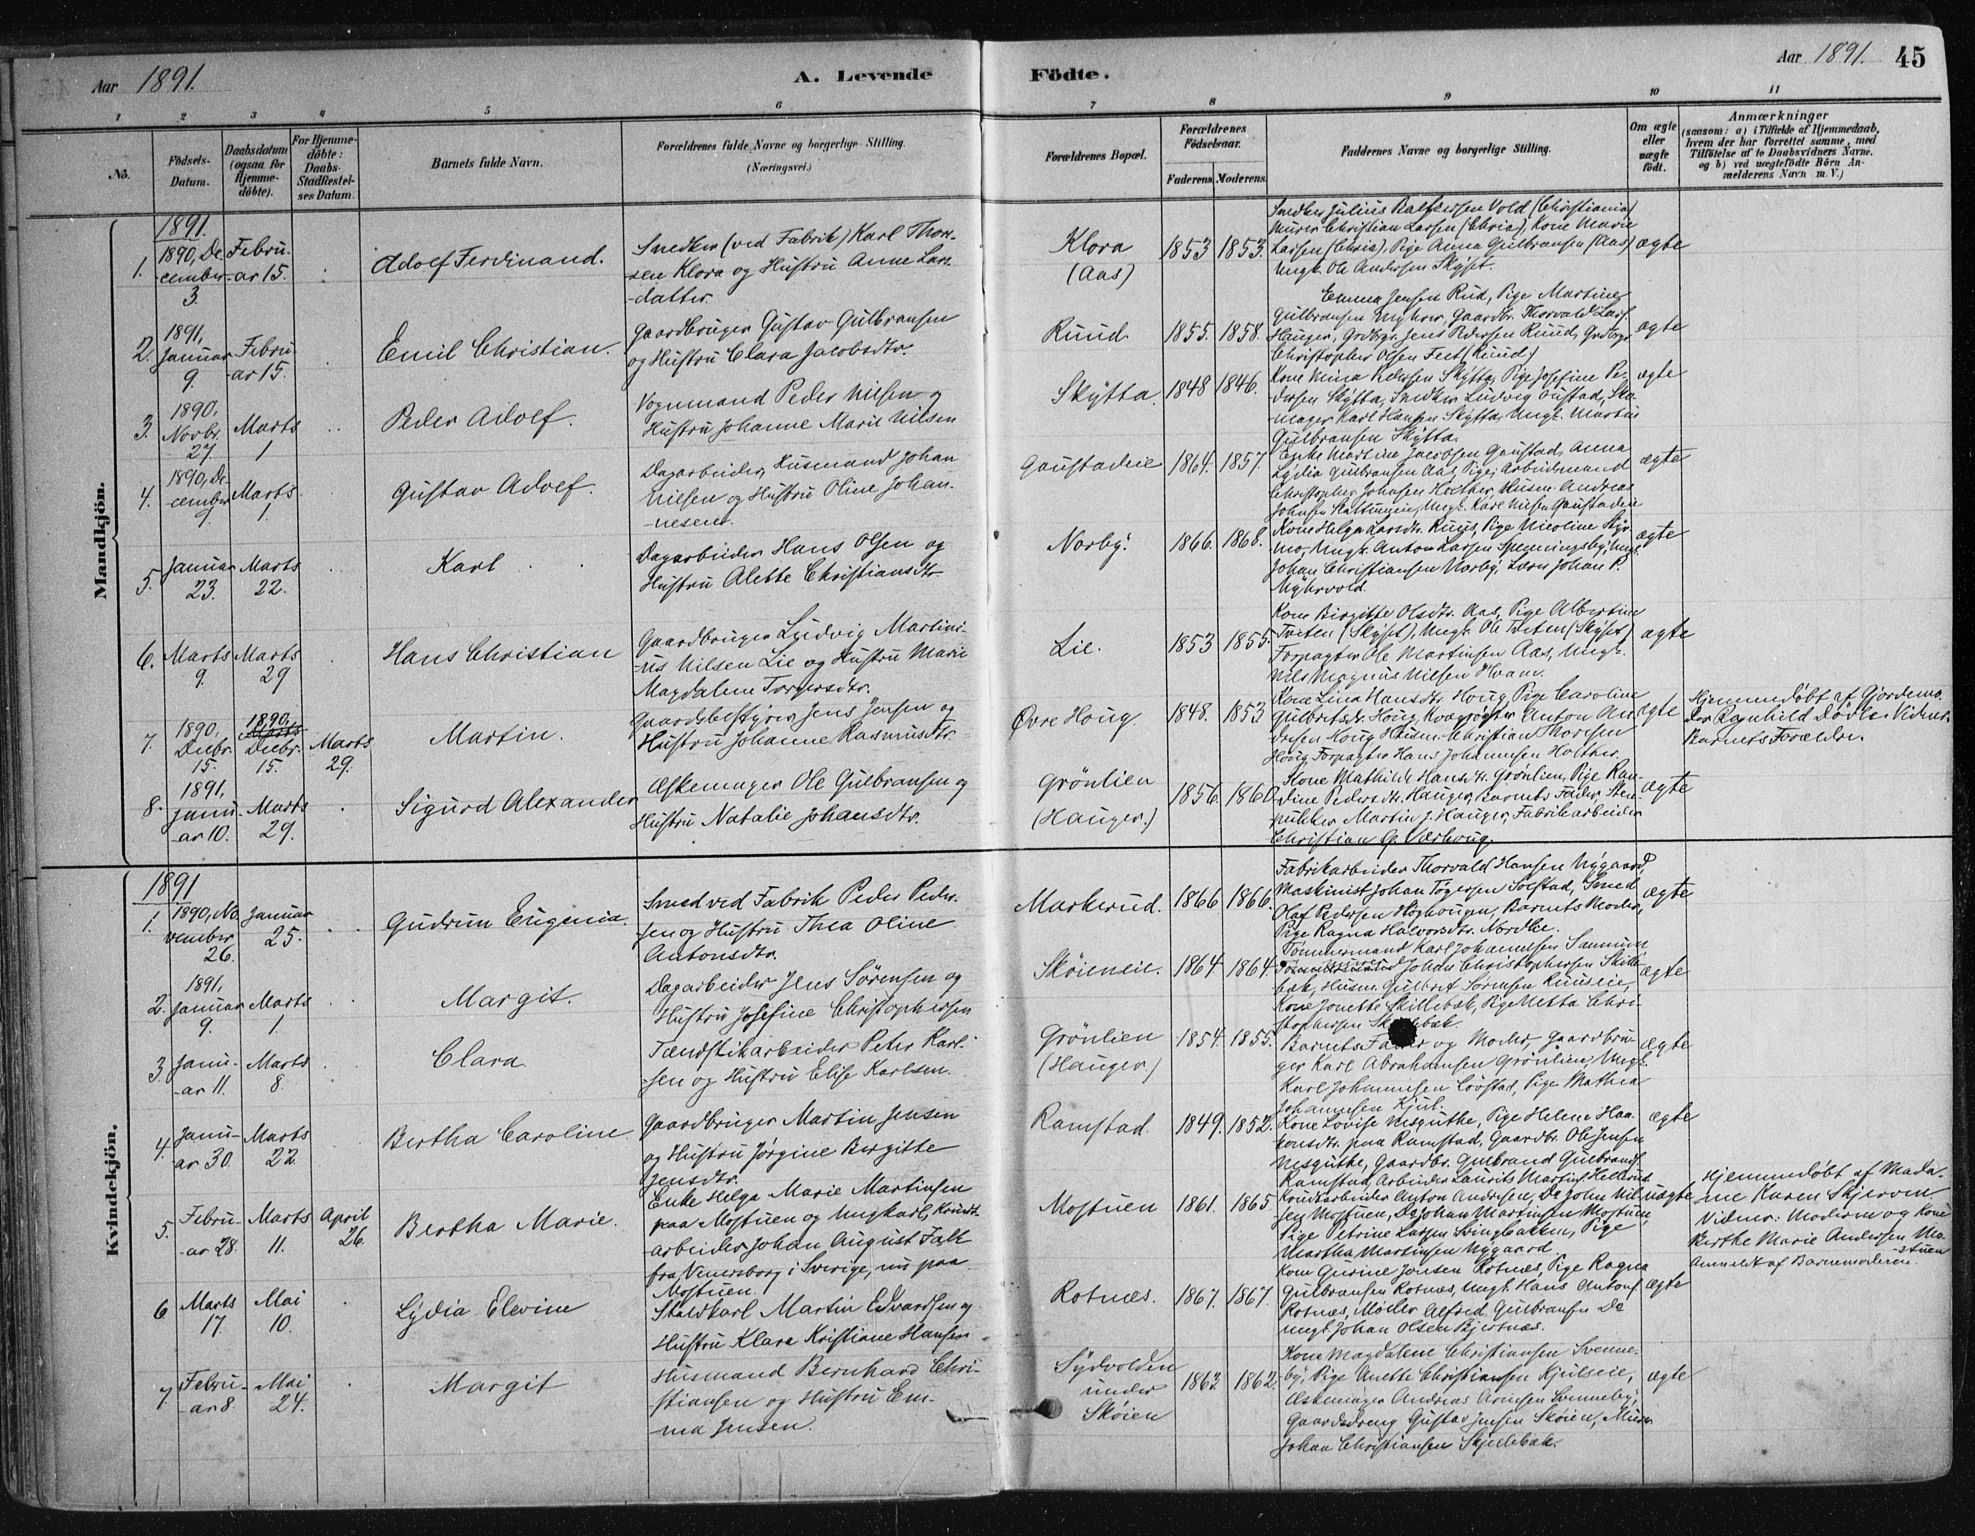 Aar 1891.
A. Levende
Födte.
Aar 1891. 45
1 2 3 4 5 6 7 8 9 10 11
No.
Födsels-
Datum.
Daabsdatum
(ogsaa for
Hjemme-
döbte).
For Hjemme-
döbte:
Daabs-
Stadfæstel-
ses Datum.
Barnets fulde Navn.
Forældrenes fulde Navne og borgerlige Stilling.
(Næringsvei.)
Forældrenes Bopæl.
Forældrenes
Födselsaar.
Faderens. Moderens.
Faddernes Navne og borgerlige Stilling.
Om ægte
eller
uægte
födt.
Anmærkninger
(saasom: a) i Tilfælde af Hjemmedaab,
hvem der har forrettet samme, med
Tilföielse af to Daabsvidners Navne.
og b) ved uægtefödte Börn An-
melderens Navn m. V.)
Mandkjön.
1891.
1. 1890, De-
cember
3.
Febru-
ar 15.
Adolf Ferdinand.
Snedker (ved Fabrik) Karl Thor-
sen Klora og Hustru Anne Lars-
datter.
Klora
(Aas)
1853 1853.
Larsen (Chria), Pige Anna Gulbransen (Aas)
Ungk. Ole Andersen Skýset.
ægte
2. 1891,
Januar
9.
Febru-
ar 15.
Emil Christian.
Gaardbruger Gustav Gulbransen
og Hustru Clara Jacobsdtr.
Ruud.
1855. 1858.
Emma Jensen Rud, Pige Martine
Gulbransen Myhrer, Gaardbr. Thorvald Lars.
Hauger, Grdbgr. Jens Pedersen Ruud, Grdbgr.
Christopher Olsen Feet (Ruud)
ægte
3. 1890,
Novbr.
27.
Marts
1
Peder Adolf.
Vognmand Peder Nilsen og
Hustru Johanne Marie Nilsen
Skýtta.
1848 1846.
Kone Mina Pedersen Skýtta, Pige Josefine Pe-
dersen Skýtta, Snedker Ludvig Oustad, Sko-
mager Karl Hansen Skýtta, Ungk. Martin
Gulbransen Skýtta.
ægte
4. 1890, De-
cember
9.
Marts
1.
Gustav Adolf.
Dagarbeider, Husmand Johan
Nilsen og Hustru Oline Johan-
nesen.
Gaustadeie
1864. 1857.
Enke Martine Jacobsen Gaustad, Anna
Lýdia Gulbransen Aas, Pige, Arbeidsmand
Christopher Johnsen Holther, Husm. Andreas
Ungk. Karl Nilsen Gaustadeie
ægte
5. Januar
23.
Marts
22.
Karl
Dagarbeider Hans Olsen og
Hustru Alette Christiansdtr.
Norby.
1866. 1868.
Kone Helga Larsdtr. Ruus, Pige Nicoline Skýr-
mo, Ungk. Anton Larsen Spenningsby, Ungk.
Johan Christiansen Norby, Lærer Johan P.
Myhrvold.
ægte
6. Marts
9.
Marts
29
Hans Christian
Gaardbruger Ludvig Martini-
us Nilsen Lie og Hustru Marie
Magdalene Torgersdtr.
Lie.
1853 1855.
Kone Birgitte Olsdtr. Aas, Pige Albertine
Tveten (Skýset), Ungk. Ole Tveten (Skýset)
Forpagter Ole Martinsen Aas, Ungk.
Nils Magnus Nilsen Hvam.
ægte
7. 1890
Decbr.
15.
1890,
Decbr.
15.
Marts
29.
Martin.
Gaardsbestyrer Jens Jensen og
Hustru Johanne Rasmusdtr.
Øvre Houg.
1848. 1853
Kone Lina Hansdtr. Houg, Pige Caroline
Gulbrandsdtr. Houg, Kvægrögter Anton An-
dresen Houg, Husm. Christian Thoresen
Houg, Forpagter Hans Johannesen Holther.
ægte
Hjemmedöbt af Gjordemo-
der Ragnhild Dövle. Vidner:
Barnets Forældre.
8. 1891,
Janu-
ar 10.
Marts
29.
Sigurd Alexander
Æskemager Ole Gulbransen og
Hustru Natalie Johansdtr.
Grönlien
(Hauger.)
1856. 1860
Kone Mathilde Hansdtr. Grönlien, Pige Ran-
dine Pedersdtr. Hauger, Barnets Fader, Sten-
hukker Martin J. Hauger, Fabrikarbeider
Christian G. Værhoug.
ægte
Kvindekjön.
1891
1. 1890, No-
vember
26.
Januar
25.
Gudrun Eugenia.
Smed ved Fabrik Peder Peder-
sen og Hustru Thea Oline
Antonsdtr.
Markerud.
1866 1866.
Fabrikarbeider Thorvald Hansen Nýgaard,
Maskinist Johan Tögersen Solstad, Smed
Olaf Pedersen Höghougen, Barnets Moder,
Pige Ragna Halvorsdtr. Nordlie.
ægte
2. 1891,
Januar
9.
Marts
1.
Margit.
Dagarbeider Jens Sörensen og
Hustru Josefine Christophersen
Skøieneie.
1864 1864.
Tömmermand Karl Johannesen Sannum
Johan Christophersen Skille-
bæk, Husm. Gulbret Sörensen Ruuseie,
Kone Jonette Skillebæk, Pige Netta Chri-
stophersen
ægte
3. Janu-
ar 11.
Marts
8.
Clara
Tændstikarbeider Peter Karl-
sen og Hustru Elise Karlsen.
Grönlien
(Hauger)
1854. 1855.
Barnets Fader og Moder, Gaardbru-
ger Karl Abrahamsen Grönlien, Ungk.
Karl Johannesen Lövstad, Pige Mathea
Johannesen Kjul.
ægte
4. Janu-
ar 30.
Marts
22.
Bertha Caroline.
Gaardbruger Martin Jensen
og Hustru Jörgine Birgitte
Jensdtr.
Ramstad.
1849. 1852.
Kone Lovise Nesguthe, Pige Helene Haa-
konsdtr. paa Ramstad, Gaardbr. Ole Jensen
Nesguthe, Gaardbr. Gulbrand Gulbrands.
Ramstad, Arbeider Laurits Martins. Hellerud
ægte
5. Febru-
ar 28.
Marts
11.
April
26.
Bertha Marie.
Enke Helga Marie Martinsen
paa Mostuen og Ungkarl, Krudt-
arbeider Johan August Falk
fra Venersborg i Sverige, nu paa
Mostuen.
Mostuen
1861. 1865.
Krudtarbeider Anton Andersen, Do John Nil-
sen Mostuen, Do Johan Martinsen Mostuen,
Pige Petrine Larsen Svingbakken, Pige
Martha Martinsen Nygaard.
uægte
Hjemmedöbt af Mada-
me Karen Skjerven.
Vidner: Moderen og Kone
Berthe Marie Andersen Mo-
stuen
Anmeldt af Barnemoderen.
6 Marts
17.
Mai
10.
Lýdia Elevine
Staldkarl Martin Edvardsen og
Hustru Klara Kristiane Hansen
Rotnæs.
1867. 1867.
Kone Gurine Jonsen Rotnæs, Pige Ragna
Gulbransen Rotnæs, Ungk. Hans Antons.
Rotnæs, Möller Alfred Gulbransen Do
Ungk. Johan Olsen Bjertnæs.
ægte
7. Febru-
ar 8.
Mai
24.
Margit
Husmand Bernhard Chri-
stiansen og Hustru Em-
ma Jensen.
Sýdvolden
under
Skøien
1863. 1862.
Kone Magdalene Christiansen Svenne-
by, Pige Anette Christiansen Kjulseie,
Æskemager Andreas Arnesen Svenneby,
Gaardsdreng Gustav Jensen Skøien, Murer
Johan Christiansen Skjellebæk.
ægte